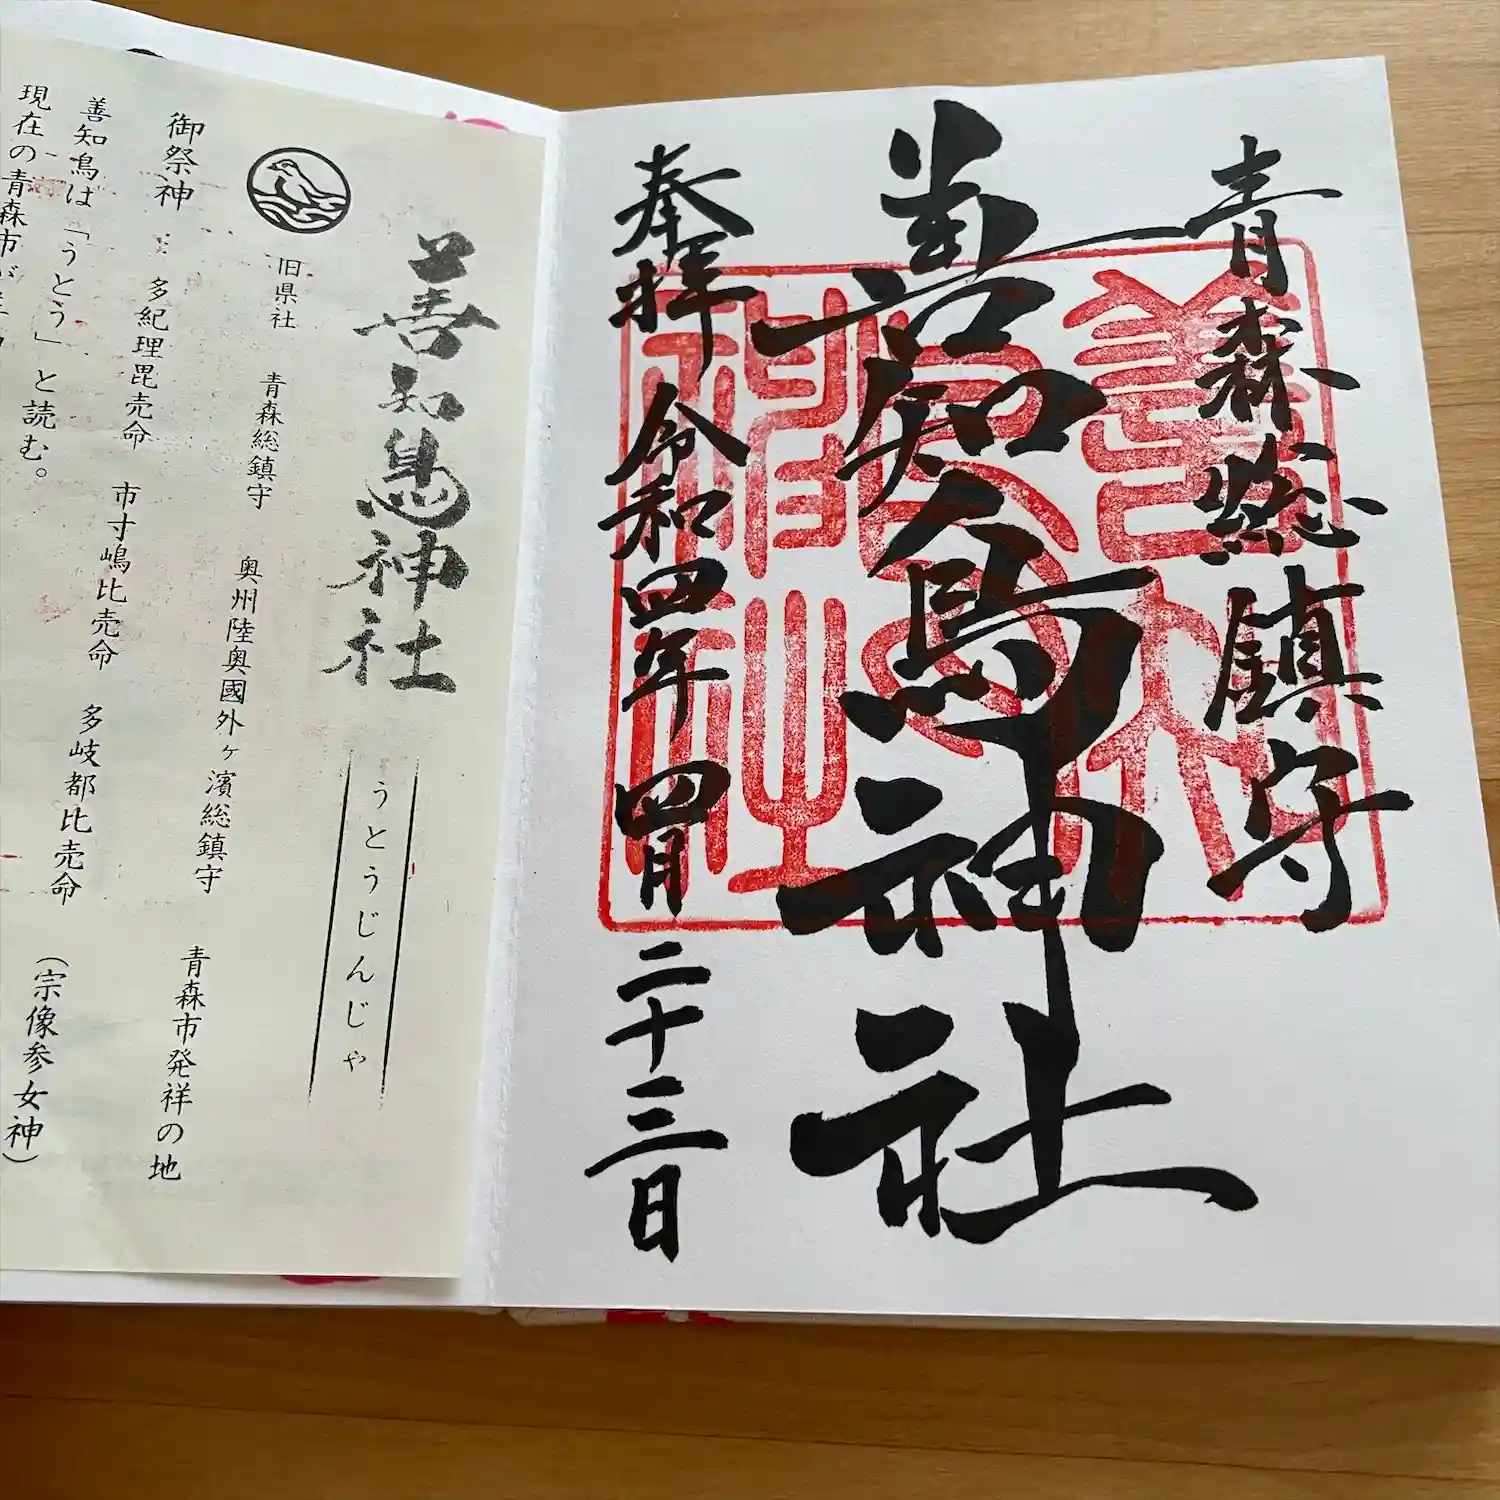 青森総鎮守
善知鳥神社
奉拝 令和四年四月二十三日
善知鳥神社
うとうじんじゃ
旧県社 青森総鎮守 奥州陸奥國外ヶ濱総鎮守 青森市発祥の地
御祭神:多紀理毘売命 市寸嶋比売命 多岐都比売命 (宗像参女神)
善知鳥は「うとう」と読む。
現在の青森市が